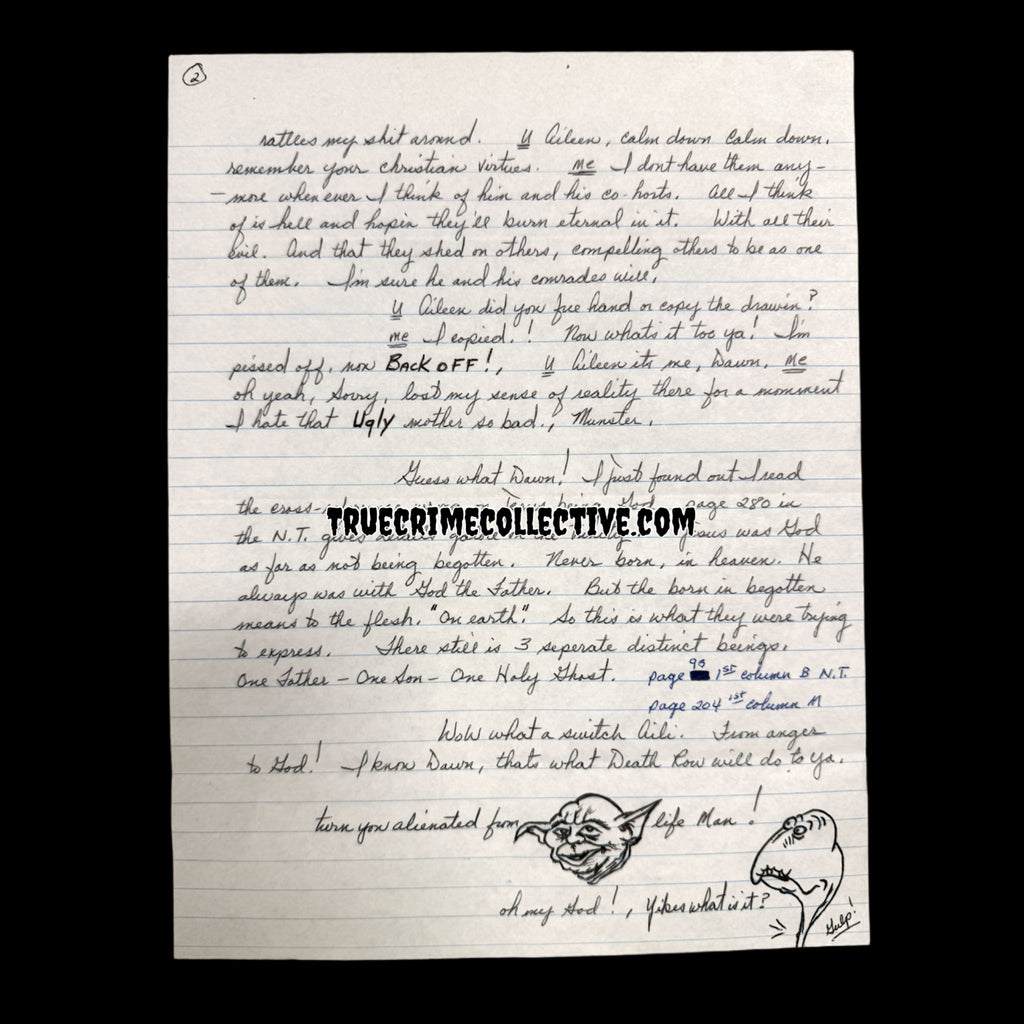 2
rattles my shit around. U Aileen, calm down Calm down.
remember your christian virtues. me I dont have them any-
-more when ever I think of him and his co-horts. All I think
of is hell and hopin they'll burn eternal in it. With all their
Evil. And that they shed on others, compelling others to be as one
of them. I'm sure he and his comrades will.
U Aileen did you free hand or copy the drawin?
me I copied.! Now whats it too ya! I'm
pissed off, now BACK OFF!, U Aileen its me, Dawn, me
oh yeah, Sorry, lost my sense of reality there for a momment
I hate that Ugly mother so bad., Munster.
Guess what Dawn! I just found out I read
the cross- Jesus being God page 280 in
TRUECRIMECOLLECTIVE.COM
the N.T. gives Jesus was God
as far as not being begotten. Never born, in heaven. He
always was with God the Father. But the born in begotten
means to the flesh. "On earth". So this is what they were trying
to express. There still is 3 seperate distinct beings.
One Father - One Son - One Holy Ghost. page 90 1ST column B N.T.
page 204 1st column M
WoW what a switch Aili. From anger
to God! I know Dawn, thats what Death Row will do to ya.
turn you alienated from life Man!
oh my God!, Yikes what is it?
Gulp!